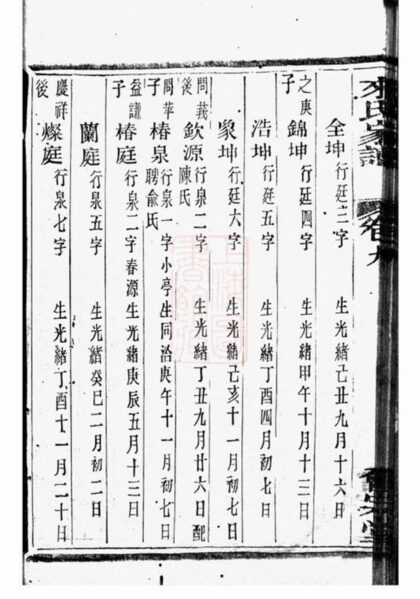 來氏家譜 卷九 會宗堂
全坤 行廷三字 生光緒己丑九月十六日
之庚子
錦坤 行廷四字 生光緒甲午十月十三日
浩坤 行廷五字 生光緒丁酉四月初七日
象坤 行廷六字 生光緒己亥十一月初七日
問莪後
欽源 行泉二字 生光緒丁丑九月廿六日配
陳氏
問華子
椿泉 行泉一字小亭生同治庚午十一月初七日
聘俞氏
益謙子
椿庭 行泉二字春源生光緒庚辰五月十三日
蘭庭 行泉五字 生光緒癸巳二月初二日
慶祥後
燦庭 行泉七字 生光緒丁酉十一月二十日